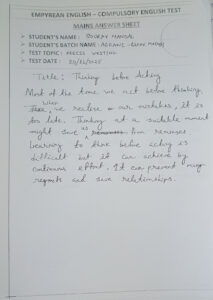 EMPYREAN ENGLISH - COMPULSORY ENGLISH TEST
MAINS ANSWER SHEET
STUDENT'S NAME :
STUDENT'S BATCH NAME :
TEST TOPIC : PRECIS WRITING
TEST DATE :
Title : Thinking before Acting
Most of the time we act before thinking,
when we realise our mistakes, it is
too late. Thinking at a suitable moment
might save us from
Learning to think before acting is
difficult but it can achieve by
continuous effort. It can prevent many
regrets and save relationships.